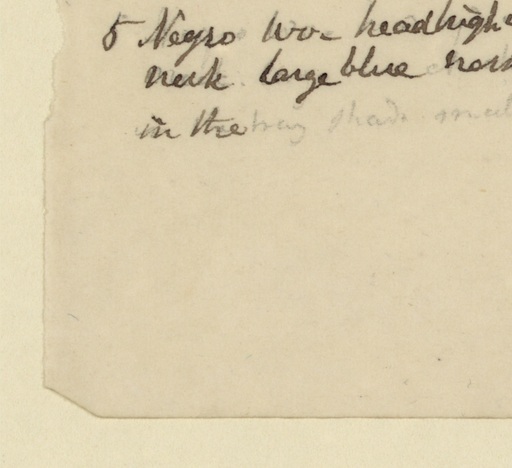 5 Negro wo- head high
neck large blue
in the tray shade